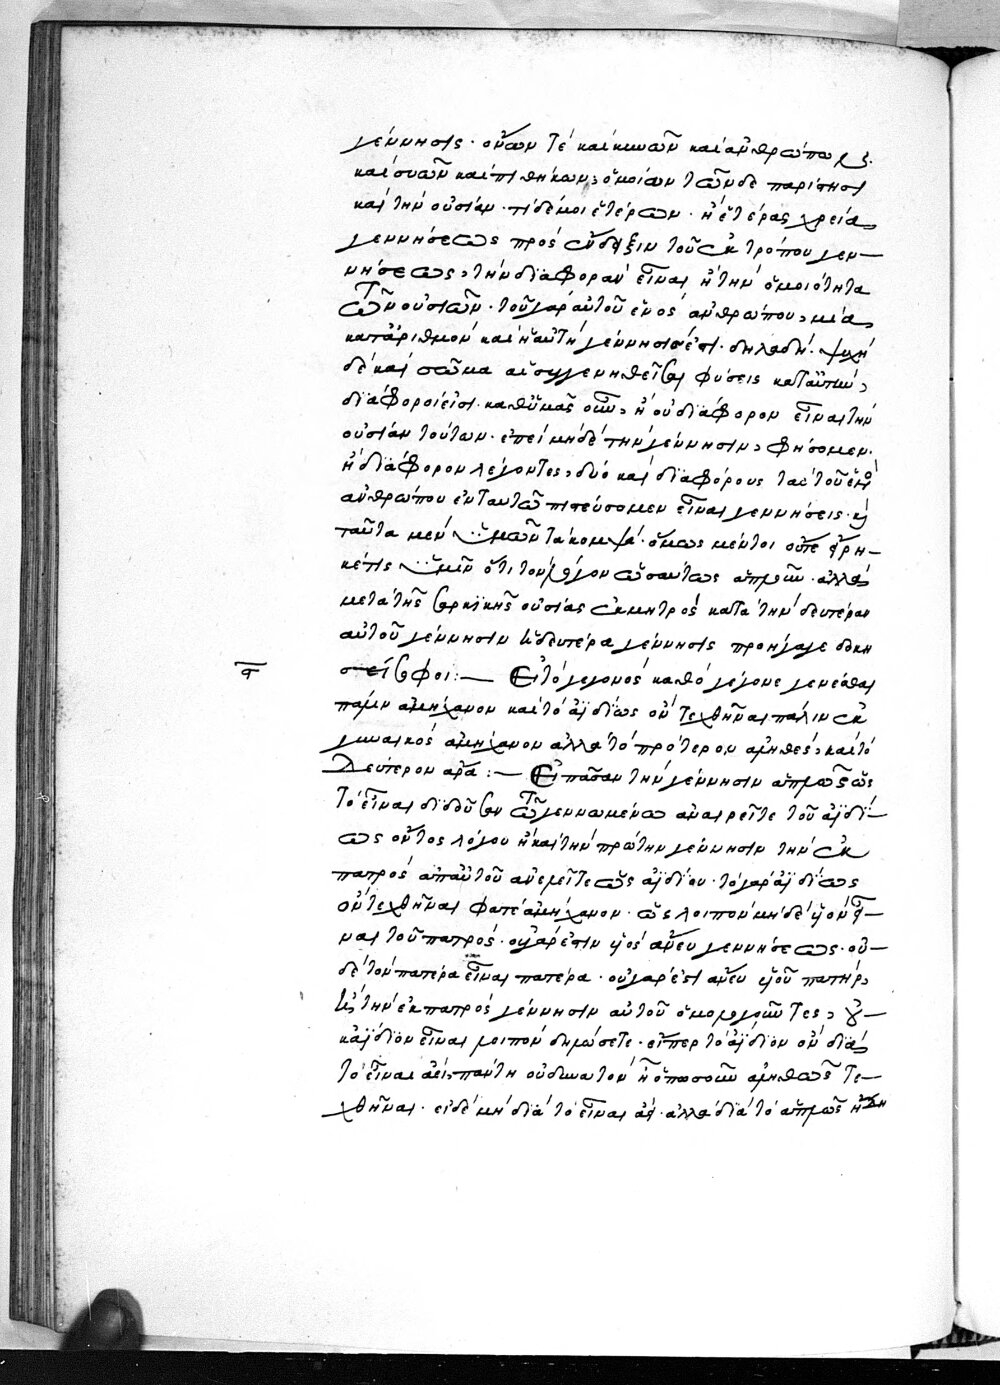 γέννησις · ὄνων τὲ καὶ κυνῶν καὶ ἀνθρώπων
καὶ συῶν καὶ πιθήκων, ὁμοίων τῶνδε παρίστησι
καὶ τὴν οὐσίαν · τί δέ μοι ἑτέρων · ἢ ἑτέρας χρεία
γεννήσεως πρὸς ἔνδειξιν τοῦ ἐκ τρόπου γεν-
νήσεως, τὴν διαφορὰν εἶναι ἢ τὴν ὁμοιότητα
τῶν οὐσιῶν · τοῦ γὰρ αὐτοῦ ἑνὸς ἀνθρώπου, μία
κατ' ἀριθμὸν καὶ ἡ αὐτὴ γέννησίς ἐστι · δηλαδή · ψυχὴ
δὲ καὶ σῶμα αἱ συγγεννηθεῖσαι φύσεις κατ' αὐτὴν,
διάφοροί εἰσι · καθ' ὑμᾶς οὖν, ἢ οὐ διάφορον εἶναι τὴν
οὐσίαν τούτων · ἐπεὶ μηδὲ τὴν γέννησιν, φήσομεν ·
ἢ διάφορον λέγοντες, δύο καὶ διαφόρους τὰς τοῦ ἑνὸς
ἀνθρώπου ἐνταυτῶ πιστεύσομεν εἶναι γεννήσεις · κ
ταῦτα μὲν ὑμῶν τὰ κομψά · ὅμως μέντοι οὔτε εἰρη-
κέ τις ὑμῖν ὅτι τὸν λόγον ὡσαύτως ἁπλῶς · ἀλλὰ
μετὰ τῆς σαρκικῆς οὐσίας ἐκ μητρὸς κατὰ τὴν δευτέραν
αὐτοῦ γέννησιν ἡ δευτέρα γέννησις προήγαγε
σοφοί :— Εἰ τὸ γεγονὸς καθὸ γέγονε γενέσθαι
πάλιν ἀμήχανον καὶ τὸ ἀϊδίως ὂν τεχθῆναι πάλιν ἐκ
γυναικὸς ἀμήχανον ἀλλὰ τὸ πρότερον ἀληθές, καὶ τὸ
δεύτερον ἄρα :— Εἰ πᾶσαν τὴν γέννησιν ἁπλῶς ὡς
τὸ εἶναι διδοῦσαν τῶ γεννωμένω ἀναιρεῖτε τοῦ ἀϊδί-
ως ὄντος λόγου ἢ καὶ τὴν πρώτην γέννησιν τὴν ἐκ
πατρὸς ἀπ' αὐτοῦ ἀνελεῖτε ὡς ἀϊδίου · τὸ γὰρ ἀϊδίως
ὂν τεχθῆναι φατὲ ἀμήχανον · ὡς λοιπὸν μηδὲ υἱὸν εἶ-
ναι τοῦ πατρός · οὐ γάρ ἐστιν υἱὸς ἄνευ γεννήσεως · οὐ-
δὲ τὸν πατέρα εἶναι πατέρα · οὐ γάρ ἐστι ἄνευ υἱοῦ πατήρ,
ἢ τὴν ἐκ πατρὸς γέννησιν αὐτοῦ ὁμολογοῦντες, οὐ-
κ ἀΐδιον εἶναι λοιπὸν δηλώσετε · εἴπερ τὸ ἀΐδιον ὂν διὰ
τὸ εἶναι ἀεὶ, πάντη ἀδύνατον ἢ ὁπωσοῦν ἀληθῶς τε-
χθῆναι · εἰ δὲ μὴ διὰ τὸ εἶναι ἀεὶ · ἀλλὰ διὰ τὸ ἁπλῶς ἤδη